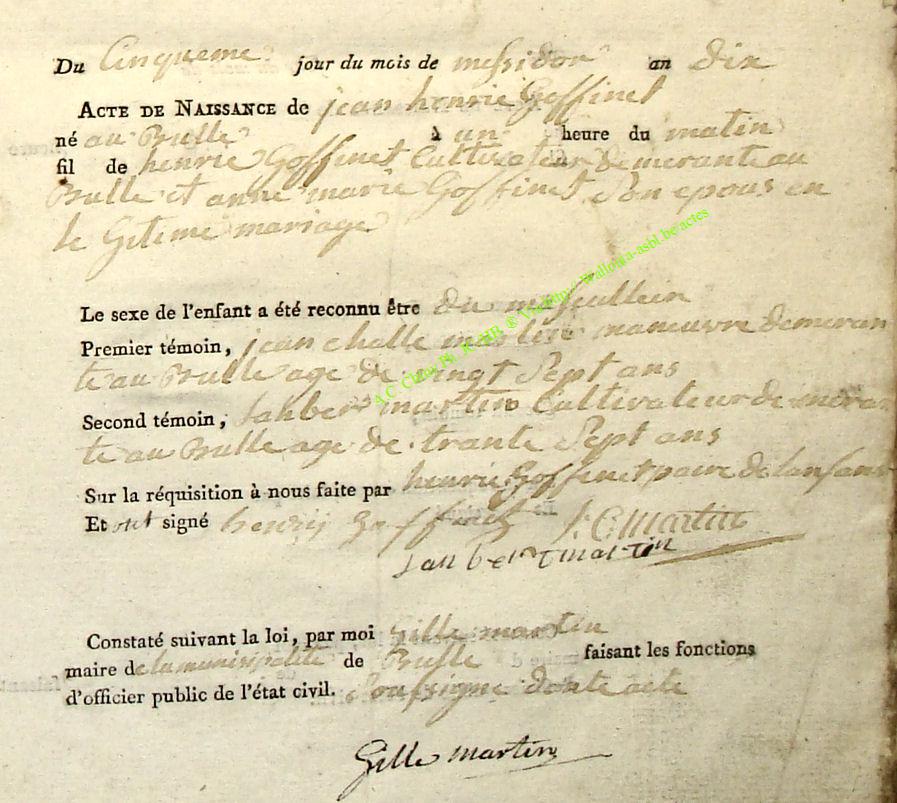 Du Cinqueme jour du mois de messidor an dix
ACTE DE NAISSANCE de jean henrie Goffinet
né au Brulle à un heure du matin
fil de henrie Goffinet Cultivateur demerante au
Brulle et anne marie Goffinet Son epous en
le Giteme mariage
Le sexe de l'enfant a été reconnu être du masculein
Premier témoin, jean challe martin maneuvre demeran
te au Brulle age de vingt Sept ans
Second témoin, Lanber martin Cultivateur de meran
te au Brulle age de trante Sept ans
Sur la réquisition à nous faite par henrie Goffinet paire de lanfant
Et ont signé henry Goffinet J:C:martin
Lanbert martin
Constaté suivant la loi, par moi Gille martin
maire de la municipalité de Brulle faisant les fonctions
d'officier public de l'état civil. Sousigne dente acte
Gille martin